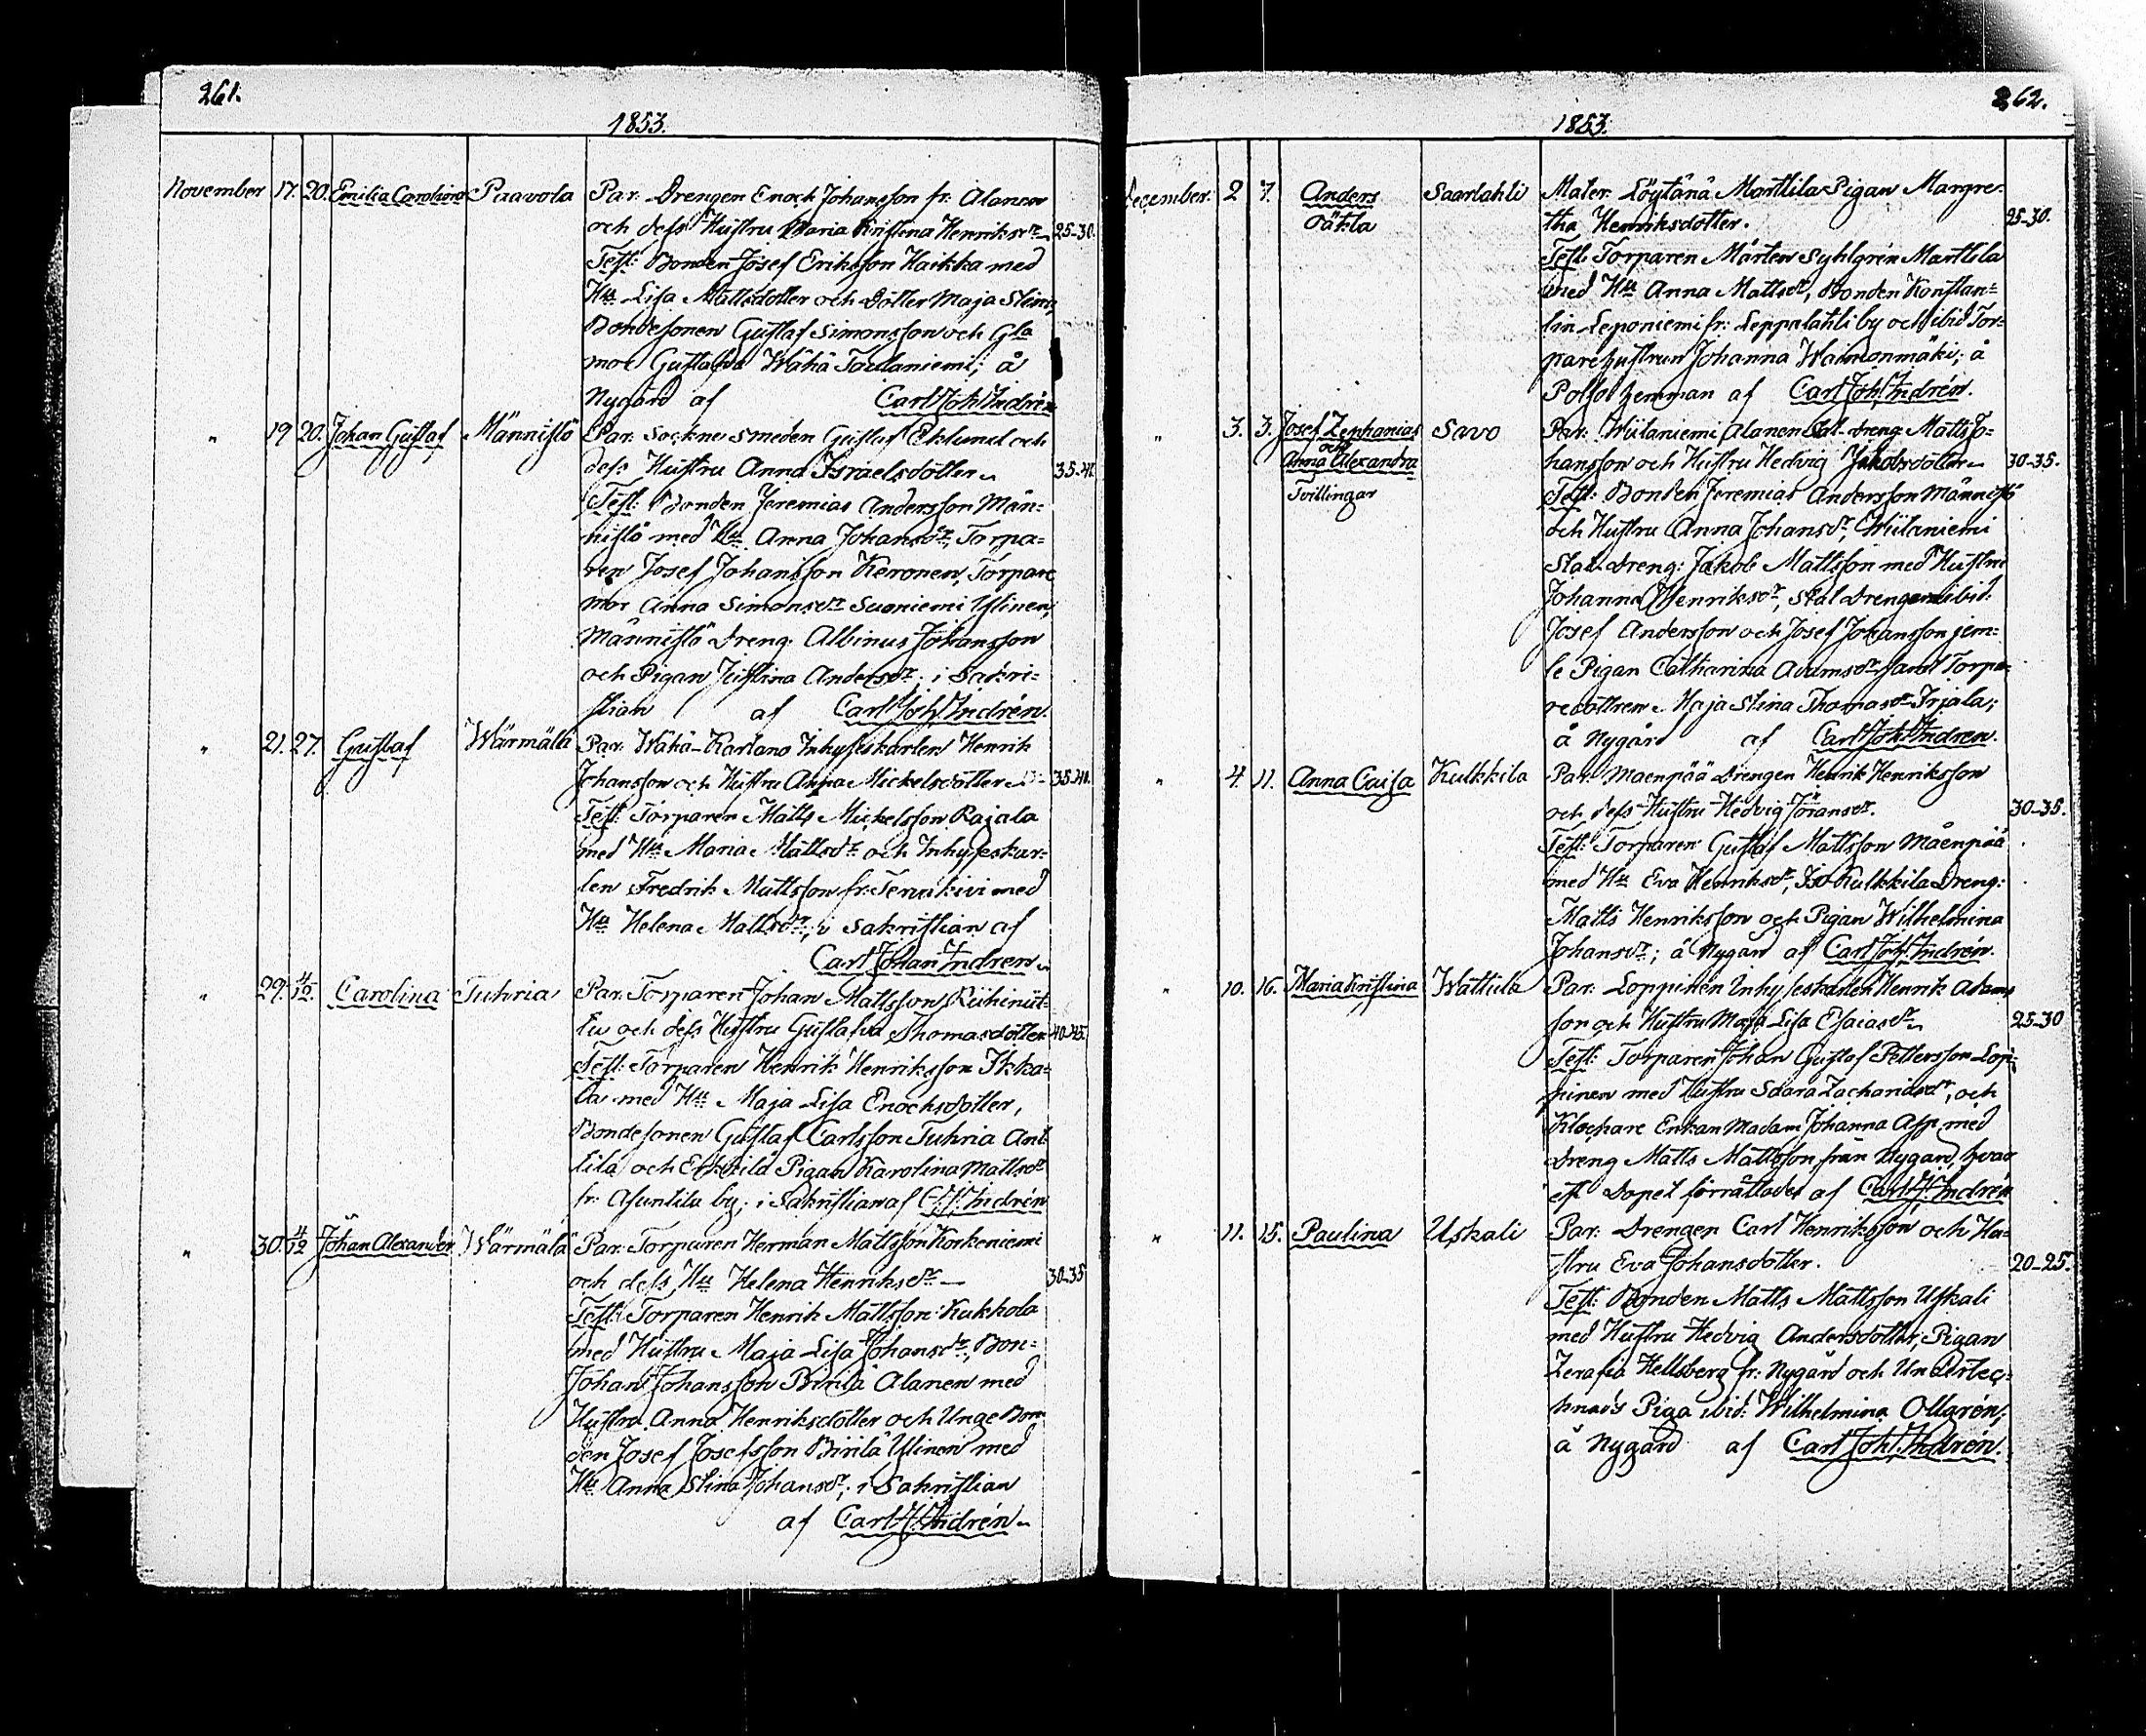 261.
1853.
November 17. 20. Emilia Carolina Paavola Par. Drengen Enoch Johansson fr. Alanen
och dess Hustru Maria Kristena Henriksdr 25-30.
Test: Bonden Josef Eriksson Haikka med
Hu Lisa Mattsdotter och Dotter Maja Stina,
Bondesonen Gustaf Simonsson och
mor Gustafva Wähä Toulaniemi; å
Nygård af Carl Joh. Indrén
" 19 20. Johan Gustaf Männistö Par. Sockne smeden Gustaf Eklund och
dess Hustru Anna Israelsdotter 35-40.
Test: Bonden Jeremias Andersson Män-
nistö med Hu Anna Johansdr, Torpa-
ren Josef Johansson Keronen, Torpare
mor Anna Simonsdr Suoniemi Ylinen,
Männistö Dreng: Albinus Johansson
och Pigan Justina Andersdr; i Sakri-
stian af Carl Joh. Indrén.
" 21. 27. Gustaf Wärmälä Par. Wähä-Karlano Inhyseskarlen Henrik
Johansson och Hustru Anna Mickelsdotter 35-40.
Test: Torparen Matts Mickelsson Rajala
med Hu Maria Mattsdr och Inhyseskar-
len Fredrik Mattsson fr. Tervakivi med
Hu Helena Mattsdr; i Sakristian af
Carl Johan Indren
" 29. 4/12. Carolina Tuhria Par. Torparen Johan Mattsson
och dess Hustru Gustafva Thomasdotter 40-45.
Test: Torparen Henrik Henriksson Ikka-
la med Hu Maja Lisa Enochsdotter,
Bondesonen Gustaf Carlsson Tuhria Ant-
tila och Pigan Karolina Mattsdr
fr. Asuntila by; i Sakristian af C. J. Indrén
" 30. 4/12 Johan Alexander Wärmälä Par. Torparen Herman Mattsson Korkeniemi
och dess Hu Helena Henriksdr 30-35
Test: Torparen Henrik Mattsson Kukkola
med Hustru Maja Lisa Johansdr, Bon-
Johan Johansson Birilä Alanen med
Hustru Anna Henriksdotter och Unge Bon
den Josef Josefsson Birilä Ylinen med
Hu Anna Stina Johansdr; i Sakristian
af Carl J. Indrén
262.
1853.
December. 2 7. Anders Saarlahti Mater: Löytänä Marttila Pigan Margre-
oäkta tha Henriksdotter. 25-30.
Test: Torparen Mårten Syhlgrén Marttila
med Hu Anna Mattsdr, Bonden Konstan-
tin Leponiemi fr. Leppalahti by och ibid Tor-
pare hustrun Johanna Wainonmäki; å
af Carl Joh. Indrén.
" 3. 3. Josef Zephanias Savo Par. Wiilaniemi Alanen Stat. dreng Matts Jo-
och
Anna Alexandra hansson och Hustru Hedvig Jakobsdotter 30-35.
Tvillingar Test: Bonden Jeremias Andersson Männistö
och Hustru Anna Johansdr, Wiilaniemi
Stat. Dreng: Jakob Mattsson med Hustru
Johanna Henriksdr, Stat Drengarne ibid:
Josef Andersson och Josef Johansson jem-
te Pigan Catharina Adamsdr samt Torpa-
redottren Maja Stina Thomasdr Irjala;
å Nygård af Carl Joh. Indren.
" 4. 11. Anna Caisa Kulkkila Par. Maenpää Drengen Henrik Henriksson
och dess Hustru Hedvig Göransdr. 30-35.
Test: Torparen Gustaf Mattsson Mäenpää
med Hu Eva Henriksdr, Iso Kulkkila Dreng:
Matts Henriksson och Pigan Wilhelmina
Johansdr; å Nygård af Carl Joh. Indrén.
" 10. 16. Maria Kristina Wättula Par. Loppinen Inhyseskarlen Henrik Adams
son och Hustru Maja Lisa Esaiasdr 25-30
Test: Torparen Johan Gustaf Pettersson Lop-
pinen med Hustru Saara Zachariasdr, och
Klockare Enkan Madam Johanna Asp med
Dreng Matts Mattsson från Nygård, hvar
est Dopet förrättades af Carl J. Indrén
" 11. 15. Paulina Uskali Par: Drengen Carl Henriksson och Hu-
stru Eva Johansdotter. 20-25.
Test: Bonden Matts Mattsson Uskali
med Hustru Hedvig Andersdotter, Pigan
Zerafia Hellsberg fr. Nygård och Undertec-
knads Piga ibid: Wilhelmina Ollgrén;
å Nygård af Carl Joh. Indrén.